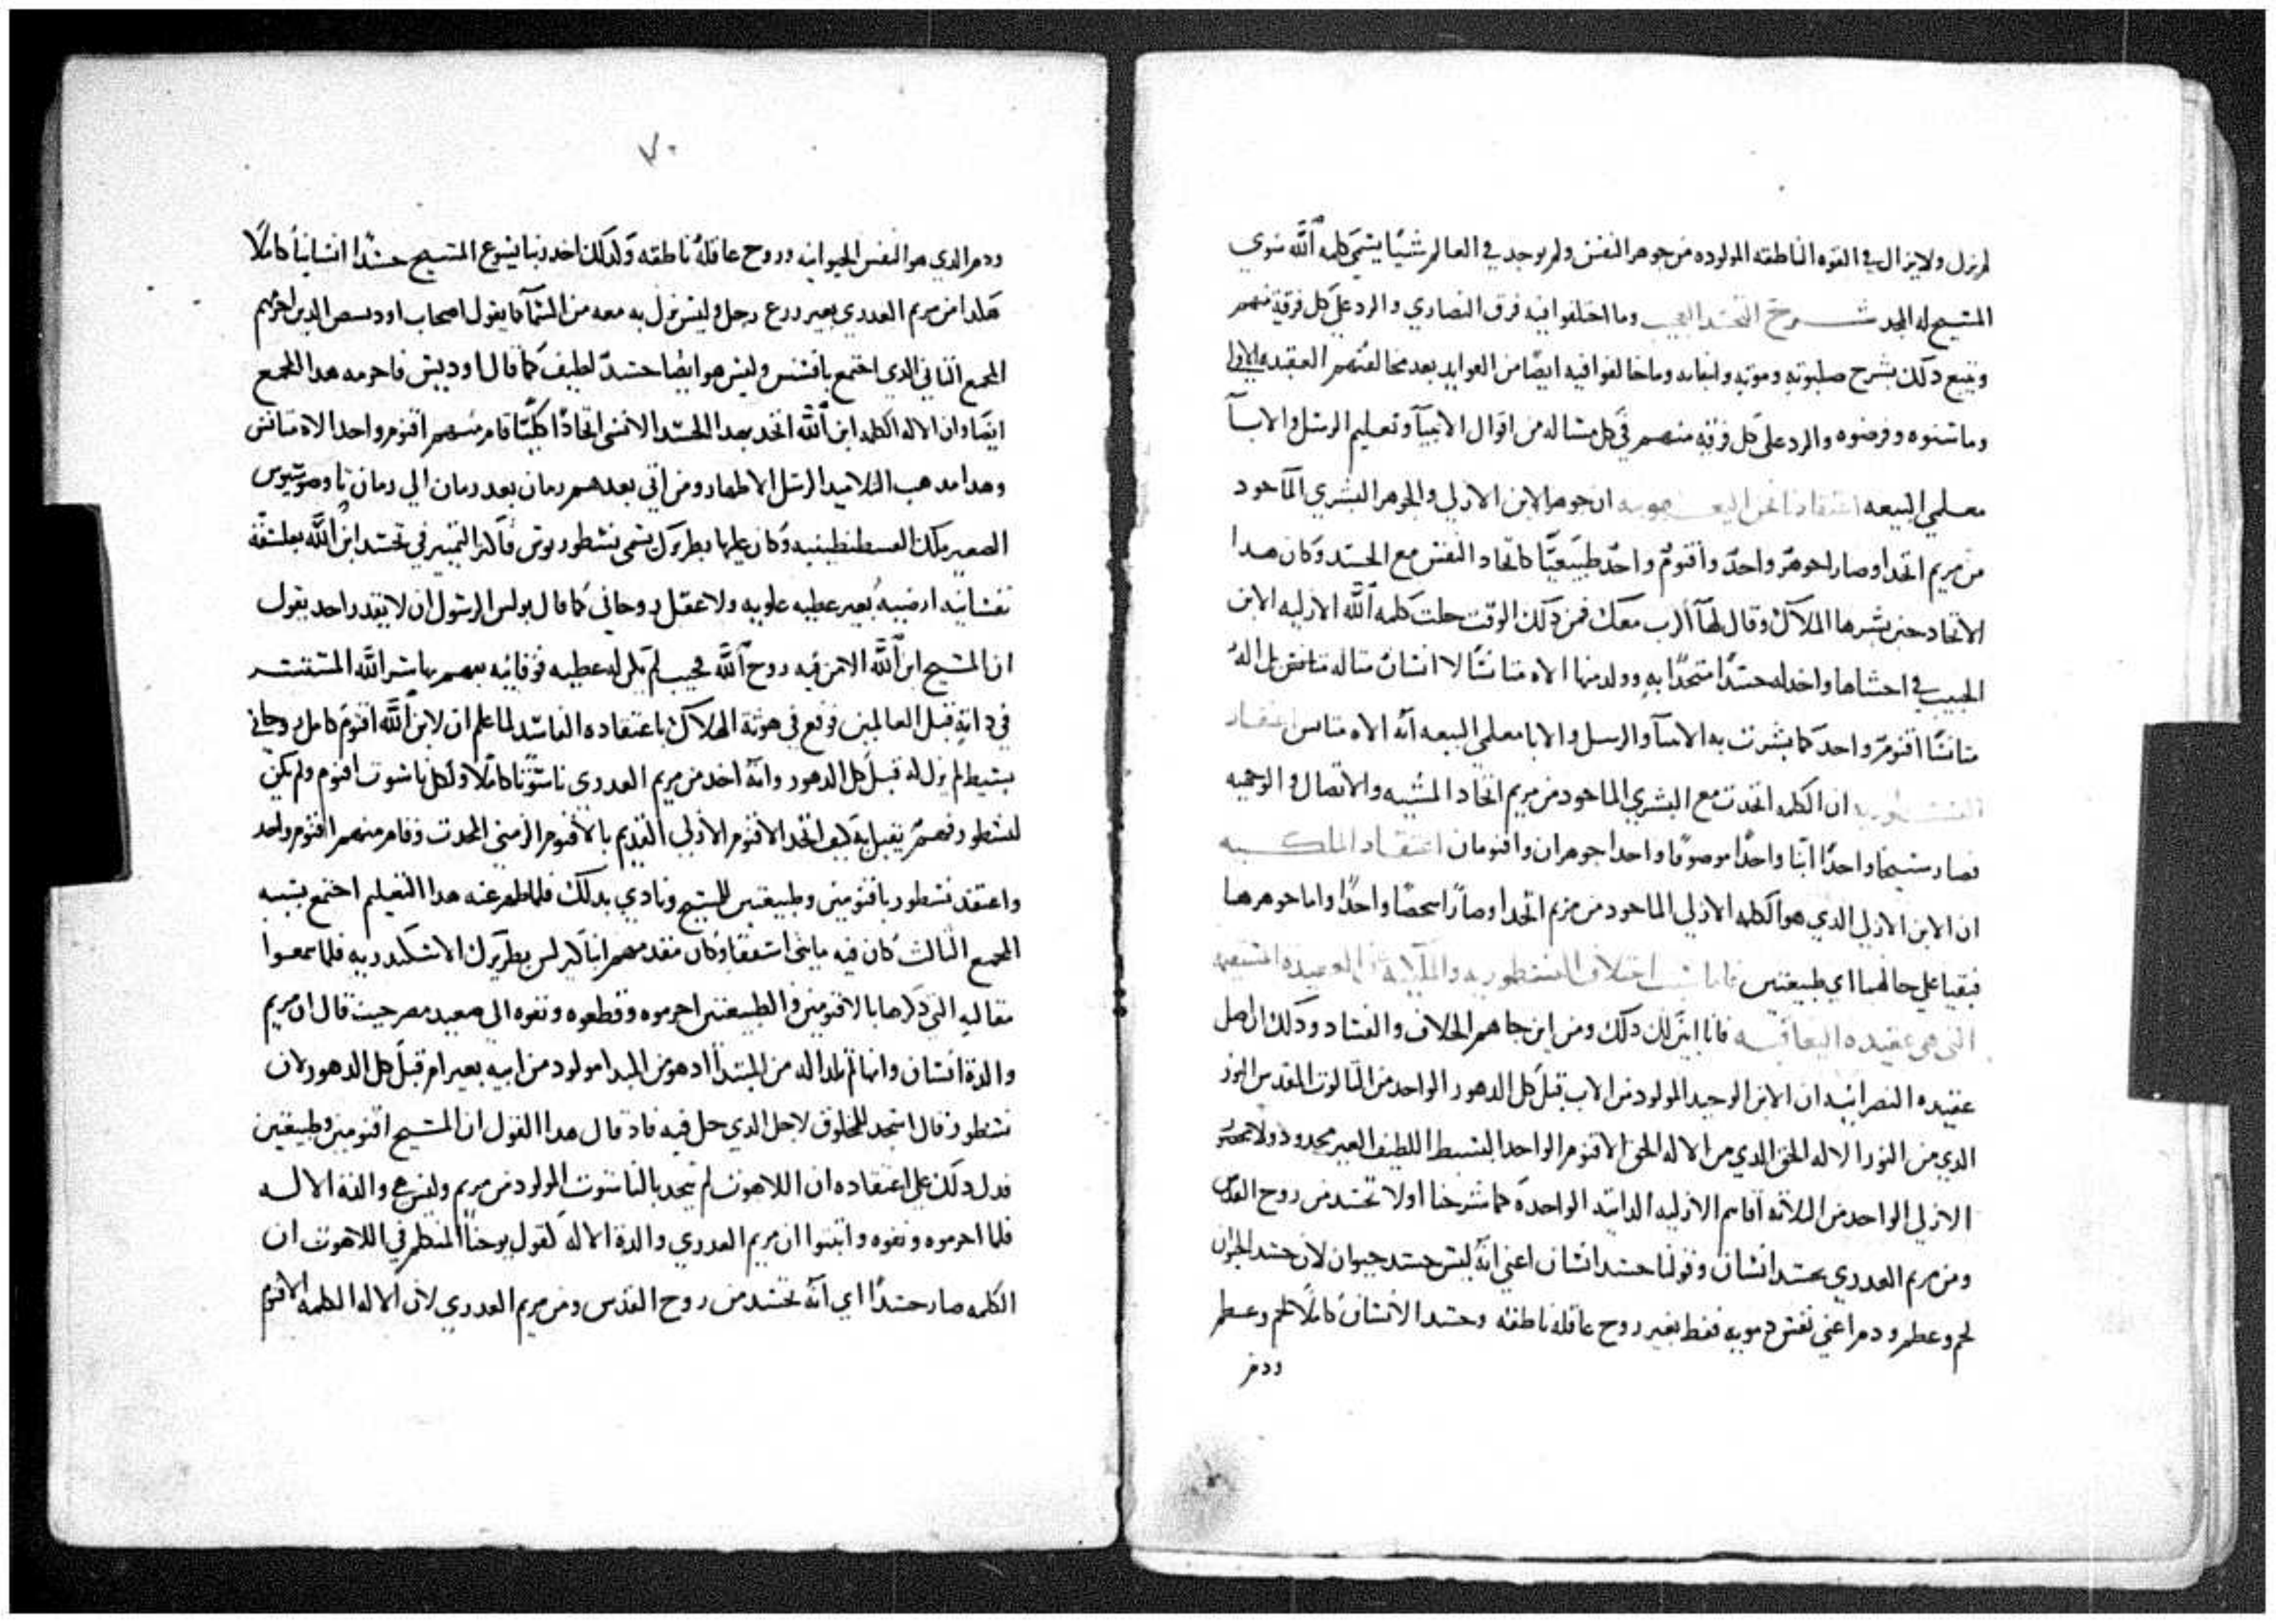 لم يزل ولا يزال في القوه الناطقه المولوده من جوهر النفس ولم يوجد في العالم شيًا يسَمي كلمه اللَّه سوي
المسيح له المجد شرح التجسد العجيب وما اختلفوا فيه فرق النصاري والرد علي كل فرقة منهم
ونتبع دلك بشرح صلبوته وموته وانبعاثه وما خالفوا فيه ايضًا من العوايد بعد مخالفتهم العقيده الاولي
وما سنوه وفرضوه والرد على كل فرقه منهم في كل مساله من اقوال الانبيآ وتعليم الرسل والابآ
معلمي البيعه اعتقادنا نحن اليعقوبيه ان جوهر الابن الازلي والجوهر البشري المآخود
من مريم اتحدا وصارا جوهرٌ واحدٌ واقنومٌ واحدٌ طبيعيًّا كاتحاد النفس مع الجسد وكان هدا
الاتحاد حين بشرها الملاك وقال لهآ الرب معك فمن دلك الوقت حلت كلمه اللَّه الازليه الابن
الحبيب في احشاها واخد له جسدًا متحدًا به وولد منها الاه متانسًا لا انسان متاله متانس بل الهُ
متانسًا اقنومٌ واحد كما بشرت به الانبيآ والرسل والابا معلمي البيعه انه الاه متانس اعتقاد
النسطوريه ان الكلمه اتحدت مع البشري الماخود من مريم اتحاد المشيه والاتصال والوجهيه
فصار مسيحًا واحدًا ابنًا واحدًا موصوفًا واحدا جوهران واقنومان اعتقاد الملكيه
ان الابن الازلي الدي هو الكلمه الازلي الماخود من مريم اتحدا وصارا شخصًا واحدًا واما جوهرهما
فبقيا علي حالهما اي طبيعتين فاما سبب اختلاف النسطوريه والملكية في العقيده المستقيمه
التي هي عقيده اليعاقبه فانا ابين لك دلك ومن اين جاهم الخلاف والفساد ودلك ان اصل
عقيده النصرانيه ان الابن الوحيد المولود من الاب قبل كل الدهور الواحد من التالوت المقدس النور
الدي من النور الاله الحق الدي من الاله الحق الاقنوم الواحد البسيط اللطيف الغير محدود ولا محصور
الازلي الواحد من التلاته اقانيم الازليه الداتيه الواحدة كما شرحنا اولا تجسد من روح القدس
ومن مريم العدري بجسد انسان وقولنا جسد انسان اعني انهُ ليس جسد حيوان لان جسد الحيوان
لحم وعظم ودم اعني نفس دمويه فقط بغير روح عاقله ناطقه وجسد الانسان كاملًا لحم وعظم
ودم
٧٠
ودم الدي هو النفس الحيوانيه وروح عاقلهُ ناطقه ولدلك اخد ربنا يسوع المسيح جسدًا انسانيًا كاملًا
هكدا من مريم العدري بغير زرع رجل وليس نزل به معه من السمآ كما يقول اصحاب الدين احرمهم
المجمع التاني الدي اجتمع بافسس وليس هو ايضا جسدٌ لطيف كما قال فاحرمه هدا المجمع
ايضا وان الاله الكلمه ابن اللَّه اتحد بهدا الجسد الانسى اتحادًا كليًّا قام منهم اقنوم واحد الاه متانس
وهدا مدهب التلاميد الرسل الاطهار ومن اتي بعدهم زمان بعد زمان الي زمان تاوضوسيوس
الصغير ملك القسطنطينيه وكان عليها بطريرك يسمى نسطوريوس فآكثر التمييز في تجسد ابن اللَّه بفلسفة
نفسانيه ارضيه بغير عطيه علويه ولا عقل روحاني كما قال بولس الرسول ان لا يقدر احد يقول
ان المسيح ابن اللَّه الا من فيه روح اللَّه فحيت لم يكن له عطيه فوقانيه يفهم بها سر اللَّه المستتر
في داته قبل العالمين وقع في هوتة الهلاك باعتقاده الفاسد لما علم ان لابن اللَّه اقنوم كامل روحاني
بسيط لم يزل له قبل كل الدهور وانه اخد من مريم العدري ناسوتًا كاملًا ولكل ناسوت اقنوم ولم يكن
لنسطور فهمٌ يقبل به كيف اتحد الاقنوم الازلي القديم بالاقنوم الزمني المحدت وقام منهم اقنوم واحد
واعتقد نسطور باقنومين وطبيعتين للمسيح ونادي بدلك فلما ظهر عنه هدا التعليم اجتمع بسببه
المجمع التالت كان فيه مايتى اسقفًا وكان مقدمهم انبا كيرلس بطريرك الاسكندريه فلما سمعوا
مقالته التي دكرها بالاقنومين والطبيعتين احرموه وقطعوه ونفوه الى صعيد مصر حيت قال ان مريم
والدة انسان وانها لم تلد اله من المبتدأ اد هو من البدا مولود من ابيه بغير ام قبل كل الدهور لان
نسطور قال اسجد للمخلوق لاجل الدي حل فيه فاد قال هدا القول ان المسيح اقنومين وطبيعتين
فدل دلك علي اعتقاده ان اللاهوت لم يتحد بالناسوت المولود من مريم وليس هي والدة الاله
فلما احرموه ونفوه واتبتوا ان مريم العدري والدة الاله لقول يوحنا المنظر في اللاهوت ان
الكلمه صار جسدًا اي انهُ تجسد من روح القدس ومن مريم العدري لان الاله الكلمه الاقنوم